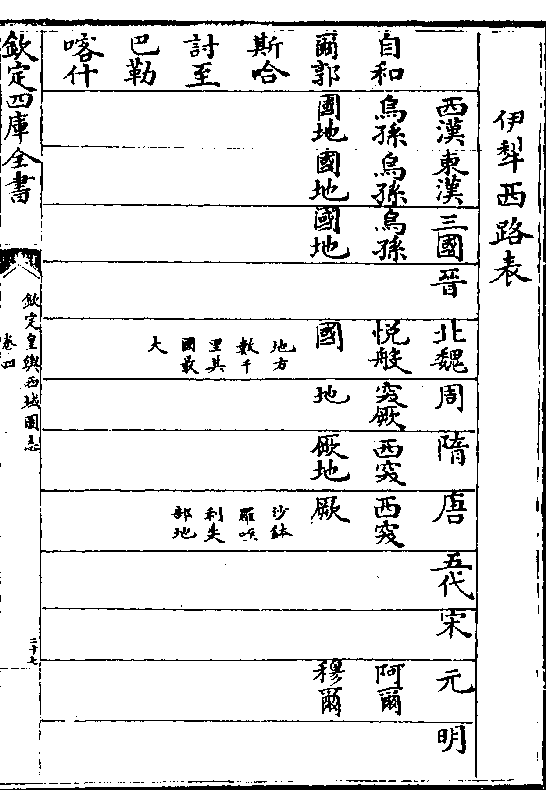 伊犂西路表
西漢
東漢
三國
晉
北魏
周
隋
唐
五代
宋
元
明
自和
爾郭
斯哈
討至
巴勒
喀什
烏孫
國地
烏孫
國地
烏孫
國地
悅般
國
地方
數千
里其
國最
大
突厥
地
西突
厥地
西突
厥
沙鉢
羅咥
利失
部地
阿爾
穆爾
欽定四庫全書
欽定皇輿西域圖志
卷四
二十七